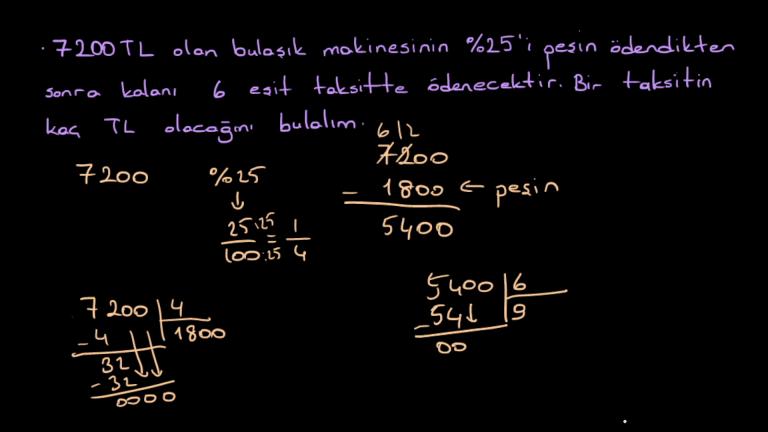 · 7200 TL olan bulaşık makinesinin %25'i peşin ödendikten
sonra kalanı 6 eşit taksitte ödenecektir. Bir taksitin
kaç TL olacağını bulalım.
7200 %25
↓
25:25 / 100:25 = 1/4
6 12
7200
- 1800 ← peşin
5400
7200 | 4
- 4 1800
32
- 32
0000
5400 | 6
- 54↓ 9
00